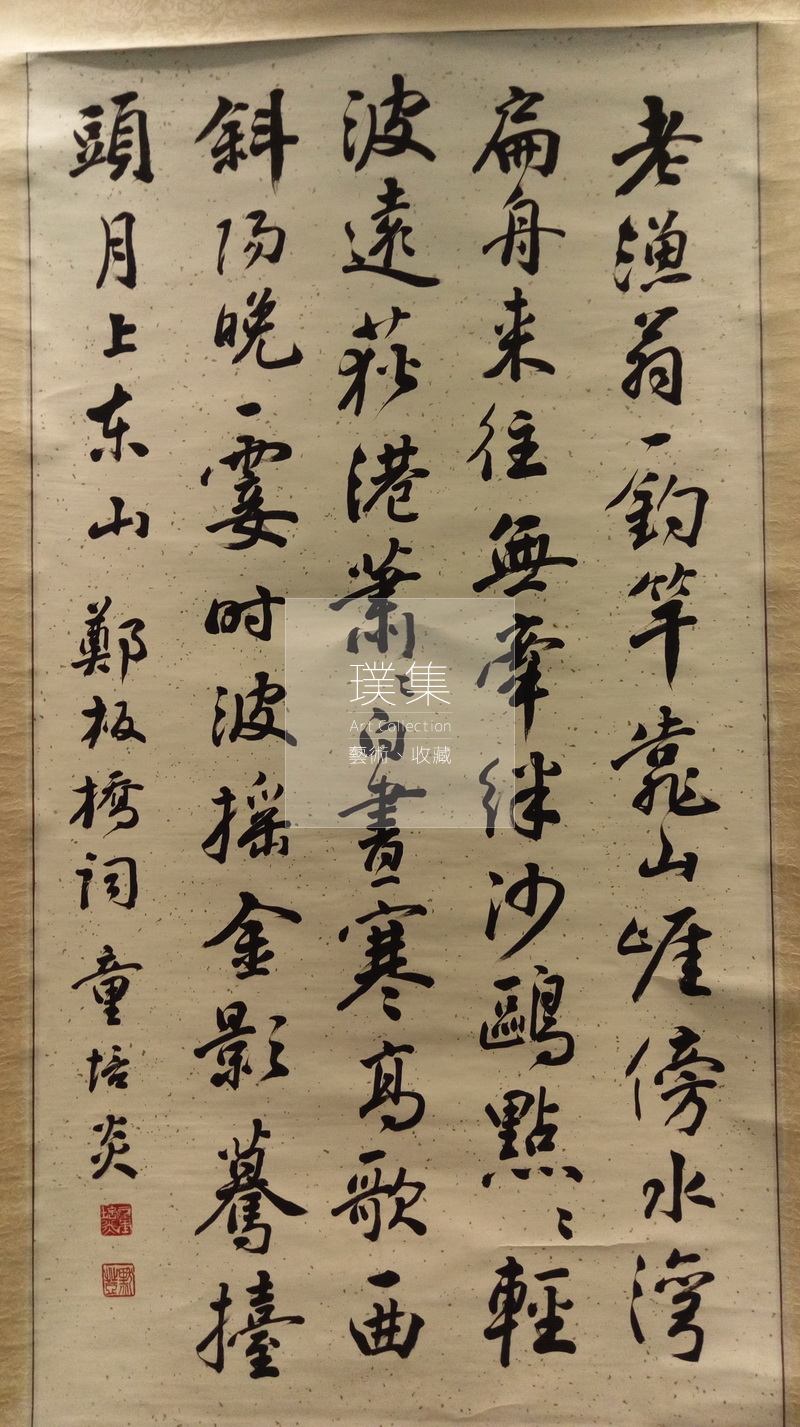 老漁翁一釣竿靠山崖傍水灣
扁舟来往無牽絆沙鷗點〻輕
波遠荻港蕭〻白晝寒〻高歌一曲
斜陽晚一霎时波摇金影驀擡
頭月上东山 鄭板橋词 童培炎
璞集
Art Collection
藝術、收藏